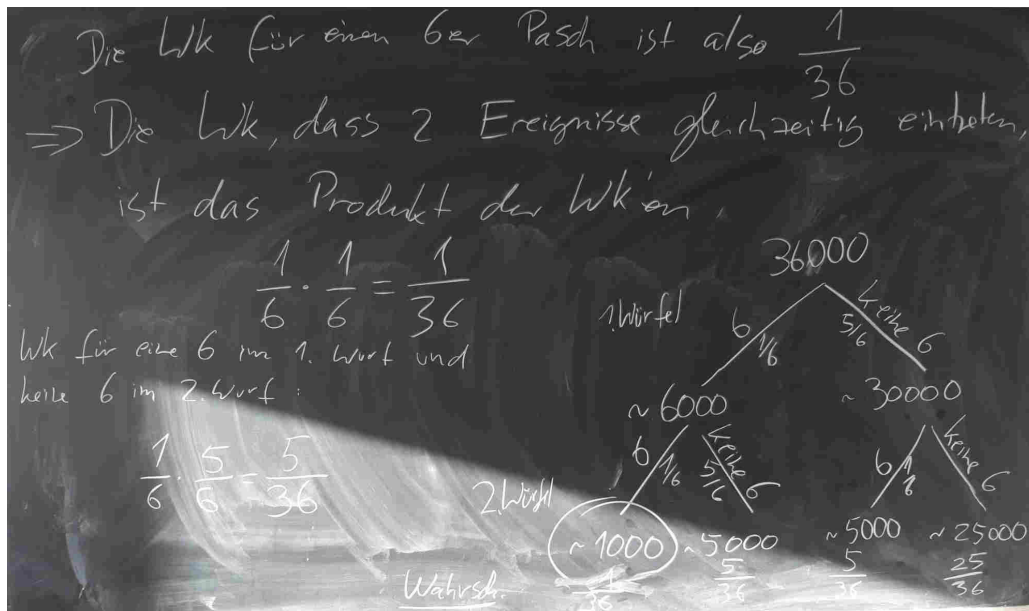 Die Wk für einen 6er Pasch ist also 1/36
=> Die Wk, dass 2 Ereignisse gleichzeitig eintreten,
ist das Produkt der Wk'en.
1/6 · 1/6 = 1/36
Wk für eine 6 im 1. Wurf und
keine 6 im 2. Wurf:
1/6 · 5/6 = 5/36
36000
1. Würfel 6 1/6 keine 6 5/6
~ 6000 ~ 30000
2. Würfel 6 1/6 keine 6 5/6 6 1/6 keine 6
~ 1000 ~ 5000 ~ 5000 ~ 25000
Wahrsch. 1/36 5/36 5/36 25/36